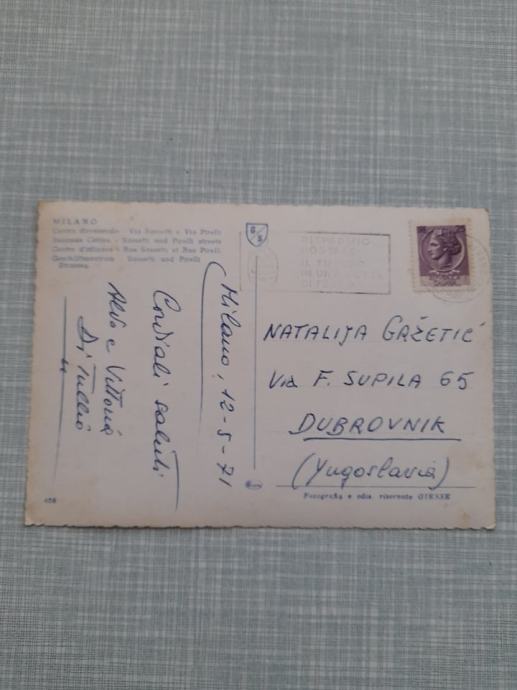 MILANO
Centro direzionale - Via Sassetti e Via Pirelli
Business Centre - Sassetti and Pirelli streets
Centre d'affaires - Rue Sassetti et Rue Pirelli
Geschäftszentrum - Sassetti und Pirelli
Strassen
G S
Milano, 12-5-71
Cordiali saluti
Aldo e Vittoria
Di Tullio
NATALIJA GRŽETIĆ
Via F. SUPILA 65
DUBROVNIK
(Yugoslavia)
Fotografia e ediz. riservata GIESSE